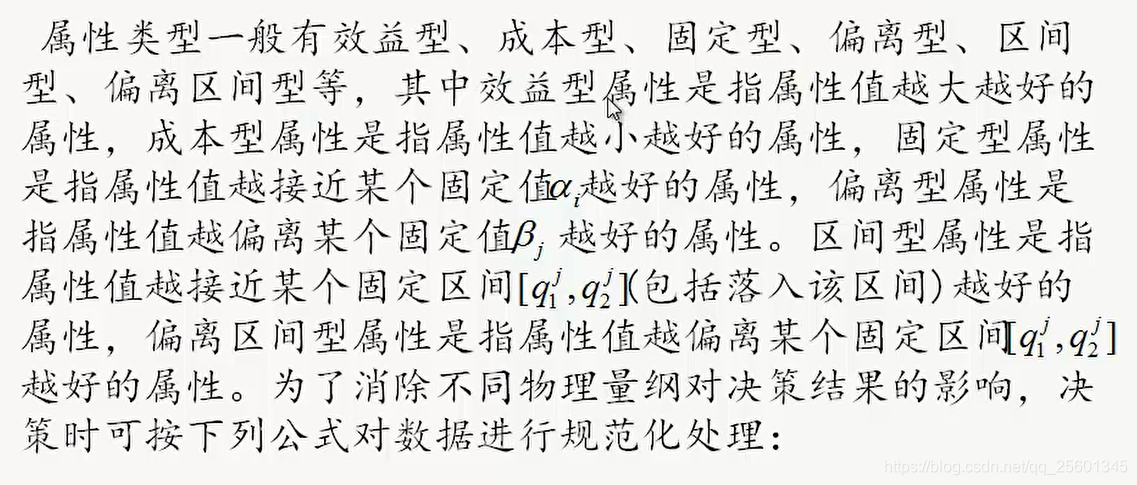 属性类型一般有效益型、成本型、固定型、偏离型、区间
型、偏离区间型等，其中效益型属性是指属性值越大越好的
属性，成本型属性是指属性值越小越好的属性，固定型属性
是指属性值越接近某个固定值α_i越好的属性，偏离型属性是
指属性值越偏离某个固定值β_j 越好的属性。区间型属性是指
属性值越接近某个固定区间[q_1^j,q_2^j](包括落入该区间)越好的
属性，偏离区间型属性是指属性值越偏离某个固定区间[q_1^j,q_2^j]
越好的属性。为了消除不同物理量纲对决策结果的影响，决
策时可按下列公式对数据进行规范化处理：
https://blog.csdn.net/qq_25601345